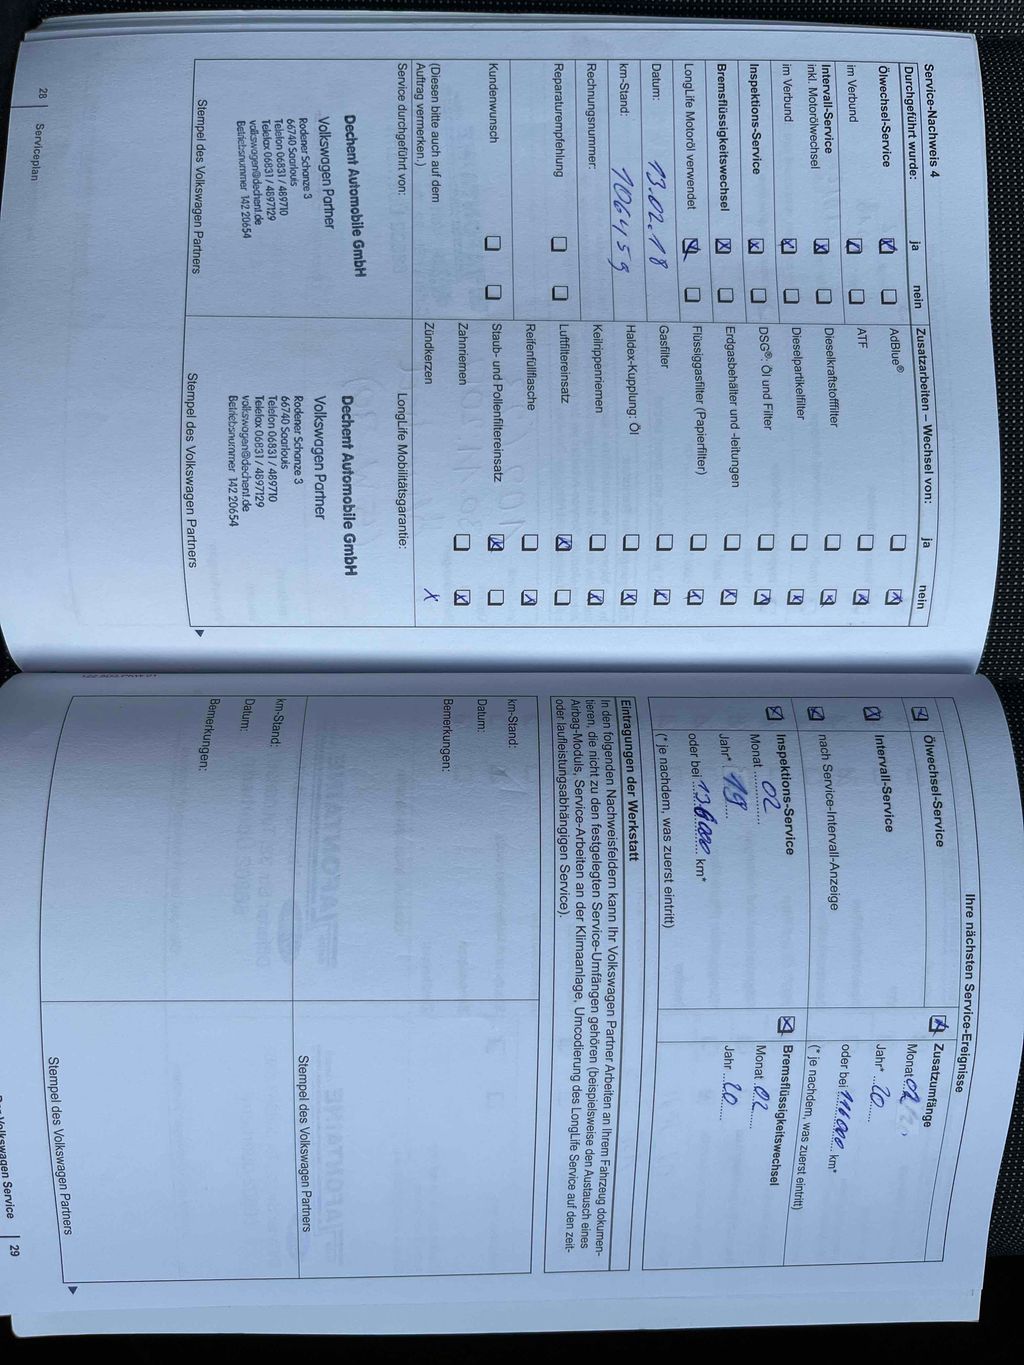 Service-Nachweis 4
Durchgeführt wurde: ja nein
Ölwechsel-Service
im Verbund
Intervall-Service
inkl. Motorölwechsel
im Verbund
Inspektions-Service
Bremsflüssigkeitswechsel
LongLife Motoröl verwendet
Datum: 13.02.18
km-Stand: 106459
Rechnungsnummer:
Reparaturempfehlung
Kundenwunsch
(Diesen bitte auch auf dem
Auftrag vermerken.)
Service durchgeführt von:
Dechent Automobile GmbH
Volkswagen Partner
Rodener Schanze 3
66740 Saarlouis
Telefon 06831 / 489710
Telefax 06831 / 4897129
volkswagen@dechent.de
Betriebsnummer 142 20654
Stempel des Volkswagen Partners
Zusatzarbeiten – Wechsel von: ja nein
AdBlue®
ATF
Dieselkraftstofffilter
Dieselpartikelfilter
DSG®: Öl und Filter
Erdgasbehälter und -leitungen
Flüssiggasfilter (Papierfilter)
Gasfilter
Haldex-Kupplung: Öl
Keilrippenriemen
Luftfiltereinsatz
Reifenfüllflasche
Staub- und Pollenfiltereinsatz
Zahnriemen
Zündkerzen
LongLife Mobilitätsgarantie:
Dechent Automobile GmbH
Volkswagen Partner
Rodener Schanze 3
66740 Saarlouis
Telefon 06831 / 489710
Telefax 06831 / 4897129
volkswagen@dechent.de
Betriebsnummer 142 20654
Stempel des Volkswagen Partners
28 Serviceplan
Ihre nächsten Service-Ereignisse
Ölwechsel-Service
Intervall-Service
nach Service-Intervall-Anzeige
Inspektions-Service
Monat 02
Jahr* 19
oder bei 136000 km*
(* je nachdem, was zuerst eintritt)
Zusatzumfänge
Monat 02
Jahr* 20
oder bei 116000 km*
(* je nachdem, was zuerst eintritt)
Bremsflüssigkeitswechsel
Monat 02
Jahr 20
Eintragungen der Werkstatt
In den folgenden Nachweisfeldern kann Ihr Volkswagen Partner Arbeiten an Ihrem Fahrzeug dokumen-
tieren, die nicht zu den festgelegten Service-Umfängen gehören (beispielsweise den Austausch eines
Airbag-Moduls, Service-Arbeiten an der Klimaanlage, Umcodierung des LongLife Service auf den zeit-
oder laufleistungsabhängigen Service).
km-Stand:
Datum:
Bemerkungen:
Stempel des Volkswagen Partners
km-Stand:
Datum:
Bemerkungen:
Stempel des Volkswagen Partners
Volkswagen Service 29